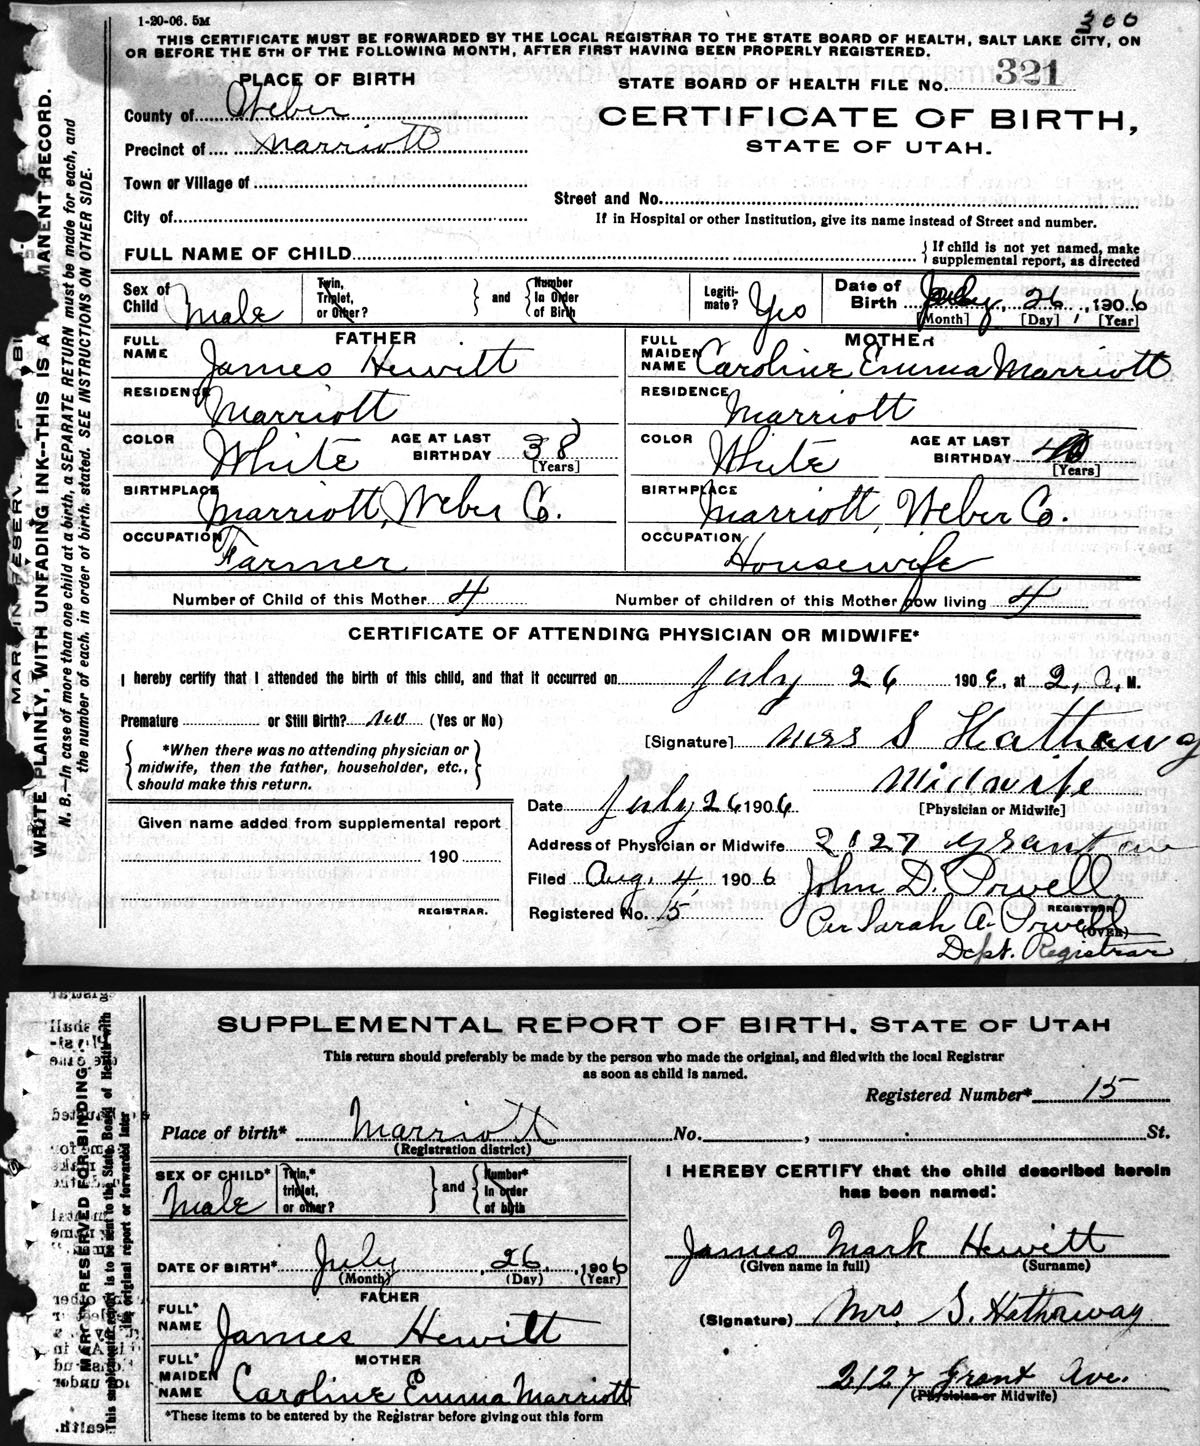 1-20-06. 5M
300
THIS CERTIFICATE MUST BE FORWARDED BY THE LOCAL REGISTRAR TO THE STATE BOARD OF HEALTH, SALT LAKE CITY, ON
OR BEFORE THE 5TH OF THE FOLLOWING MONTH, AFTER FIRST HAVING BEEN PROPERLY REGISTERED.
PLACE OF BIRTH
STATE BOARD OF HEALTH FILE No. 321
County of Weber
CERTIFICATE OF BIRTH,
Precinct of Marriott
STATE OF UTAH.
Town or Village of
Street and No.
City of
If in Hospital or other Institution, give its name instead of Street and number.
FULL NAME OF CHILD
If child is not yet named, make
supplemental report, as directed
Sex of Child Male
Twin, Triplet, or Other? and Number in Order of Birth
Legitimate? Yes
Date of Birth July 26, 1906
[Month] [Day] [Year]
FATHER
MOTHER
FULL NAME James Hewitt
FULL MAIDEN NAME Caroline Emma Marriott
RESIDENCE Marriott
RESIDENCE Marriott
COLOR White AGE AT LAST BIRTHDAY 38 [Years]
COLOR White AGE AT LAST BIRTHDAY [Years]
BIRTHPLACE Marriott, Weber Co.
BIRTHPLACE Marriott, Weber Co.
OCCUPATION Farmer
OCCUPATION Housewife
Number of Child of this Mother 4
Number of children of this Mother now living 4
CERTIFICATE OF ATTENDING PHYSICIAN OR MIDWIFE*
I hereby certify that I attended the birth of this child, and that it occurred on July 26 1906, at 2, A. M.
Premature or Still Birth? no (Yes or No)
*When there was no attending physician or
midwife, then the father, householder, etc.,
should make this return.
[Signature] Mrs S Hathaway
Midwife
[Physician or Midwife]
Date July 26 1906
Given name added from supplemental report
Address of Physician or Midwife 2127 Grant ave
190
Filed Aug. 4, 1906 John D. Powell
REGISTRAR.
REGISTRAR.
Registered No. 15
Per Sarah A. Powell
(OVER)
Dept. Registrar
MARGIN RESERVED
WRITE PLAINLY, WITH UNFADING INK--THIS IS A PERMANENT RECORD.
N. B.—In case of more than one child at a birth, a SEPARATE RETURN must be made for each, and
the number of each, in order of birth, stated. SEE INSTRUCTIONS ON OTHER SIDE.
SUPPLEMENTAL REPORT OF BIRTH. STATE OF UTAH
This return should preferably be made by the person who made the original, and filed with the local Registrar
as soon as child is named.
Registered Number* 15
Place of birth* Marriott No. , St.
(Registration district)
SEX OF CHILD* Male
Twin,* triplet, or other? and Number* in order of birth
I HEREBY CERTIFY that the child described herein
has been named:
James Mark Hewitt
(Given name in full) (Surname)
DATE OF BIRTH* July, 26, 1906
(Month) (Day) (Year)
FATHER
FULL* NAME James Hewitt
(Signature) Mrs. S. Hathaway
MOTHER
FULL* MAIDEN NAME Caroline Emma Marriott
2127 Grant Ave.
(Physician or Midwife)
*These items to be entered by the Registrar before giving out this form
MARGIN RESERVED FOR BINDING.
This supplemental report is to be sent to the State Board of Health with
the original report or forwarded later